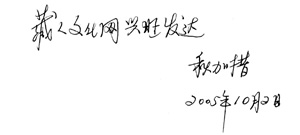 藏人文化网兴旺发达
秋加措
2005年10月2日